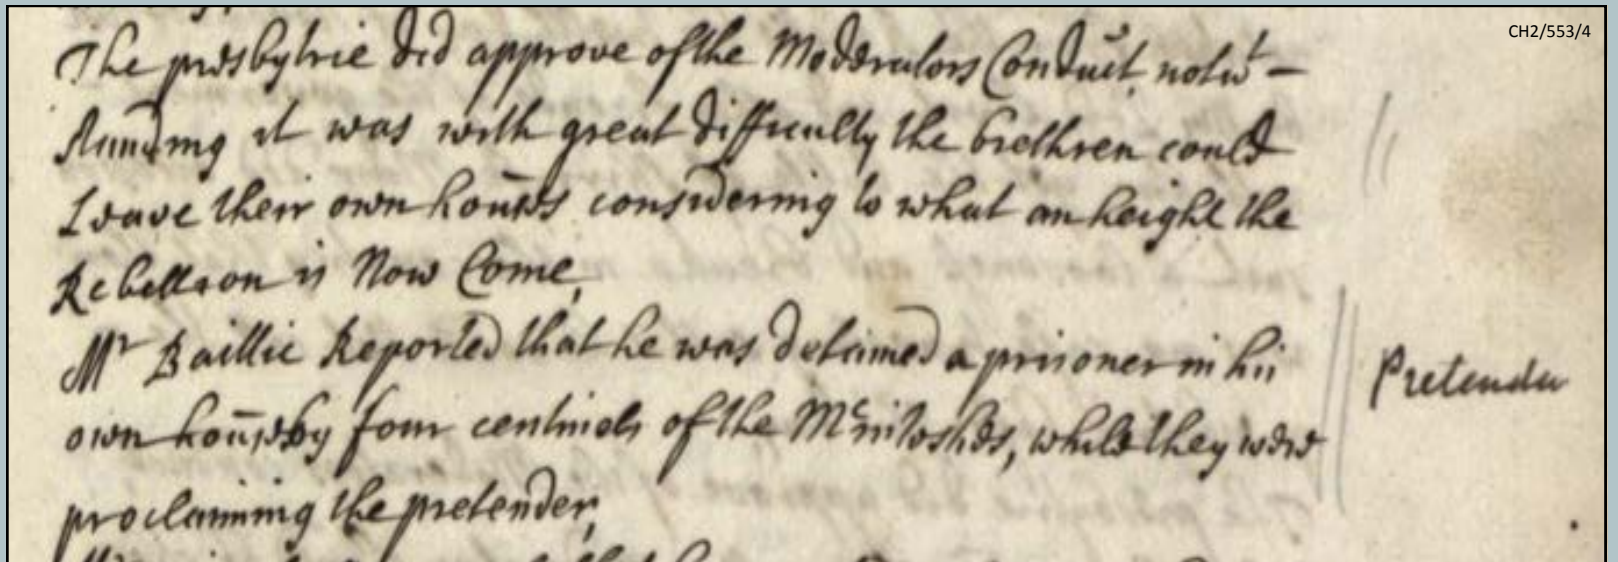 CH2/553/4
The presbytrie did approve of the Moderators Conduct, notwt-
standing it was with great difficulty the brethren could
Leave their own houses considering to what an height the
Rebellion is Now Come,
Mr Baillie Reported that he was detained a prisoner in his
own house by four centinels of the Mcintoshes, while they were
proclaiming the pretender,
Pretender